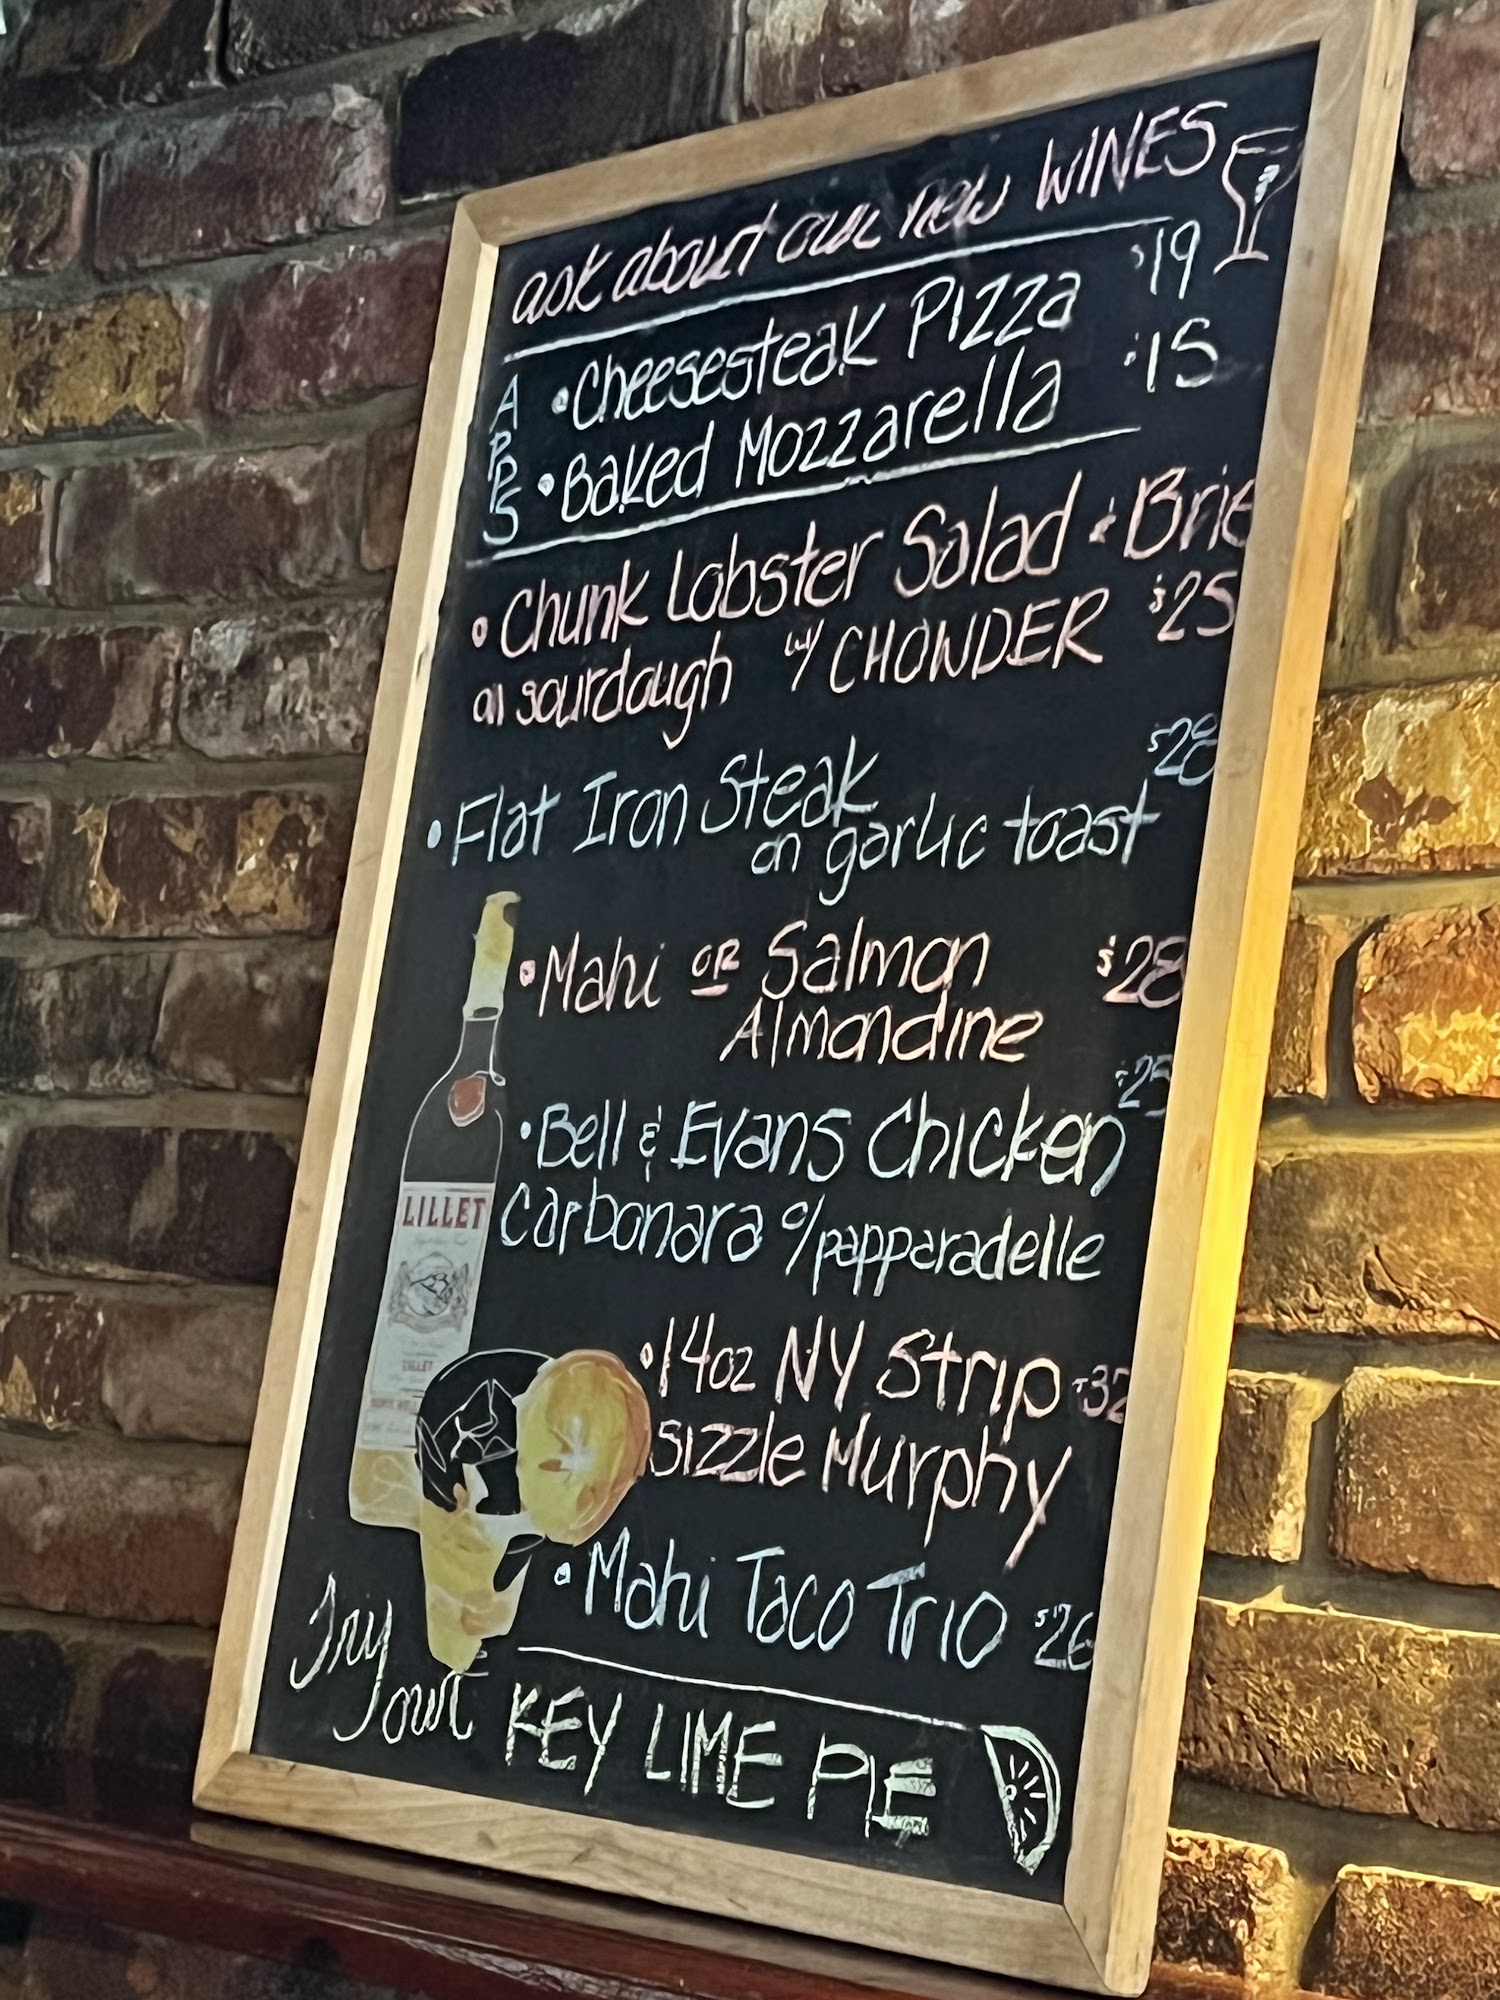 ask about our new WINES
APPS
• Cheesesteak Pizza $19
• Baked Mozzarella $15
• Chunk Lobster Salad & Brie
on sourdough w/ CHOWDER $25
• Flat Iron Steak $28
on garlic toast
• Mahi OR Salmon $28
Almondine
• Bell & Evans Chicken $25
Carbonara o/papparadelle
• 14oz NY Strip $32
Sizzle Murphy
• Mahi Taco Trio $26
Try
our KEY LIME PIE
LILLET
LILLET